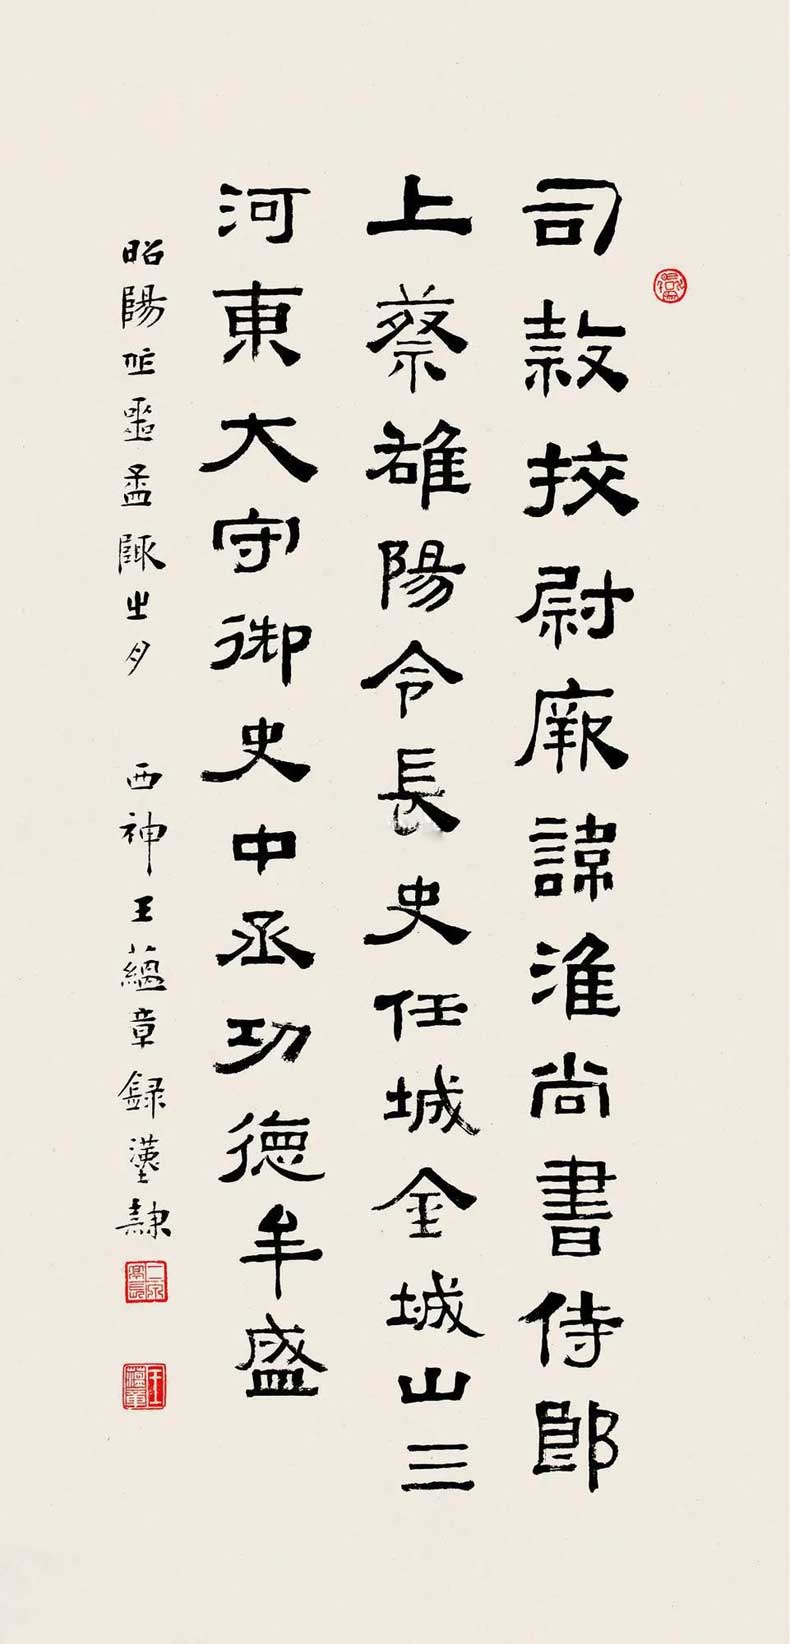 司挍尉厥諱淮尚書侍郎
上蔡雒陽令長史任城金城山三
河東大守御史中丞功德牟盛
昭陽作噩孟陬之月 西神王蘊章錄漢隸
王蘊章